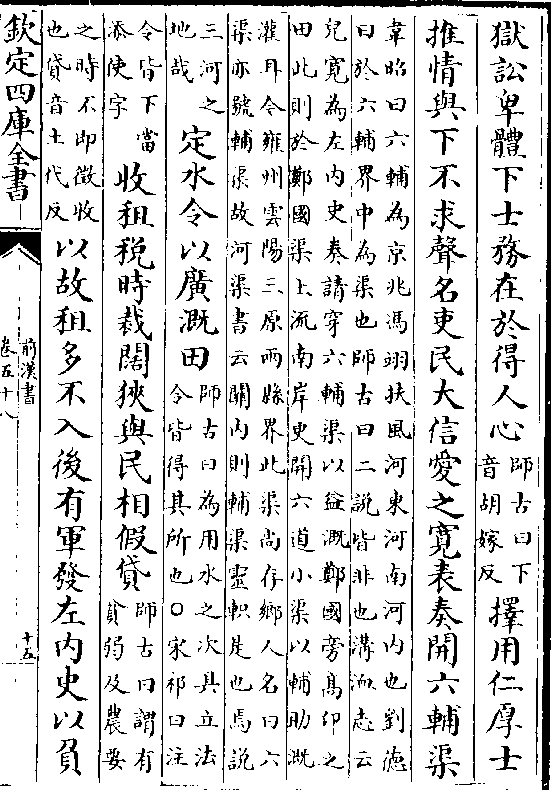 獄訟卑體下士務在於得人心師古曰下音胡嫁反擇用仁厚士
推情與下不求聲名吏民大信愛之寬表奏開六輔渠
韋昭曰六輔為京兆馮翊扶風河東河南河内也劉德
曰於六輔界中為渠也師古曰二說皆非也溝洫志云
兒寬為左内史奏請穿六輔渠以益溉鄭國旁髙卬之
田此則於鄭國渠上流南岸更開六道小渠以輔助溉
灌耳今雍州雲陽三原兩縣界此渠尚存鄉人名曰六
渠亦號輔渠故河渠書云關内則輔渠靈軹是也焉說
三河之地哉定水令以廣溉田師古曰為用水之次具立法令皆得其所也○宋祁曰注
令皆下當添使字收租稅時裁闊狹與民相假貸師古曰謂有貧弱及農要
之時不即徵收也貸音土代反以故租多不入後有軍發左内史以負
欽定四庫全書
前漢書
卷五十八
十五